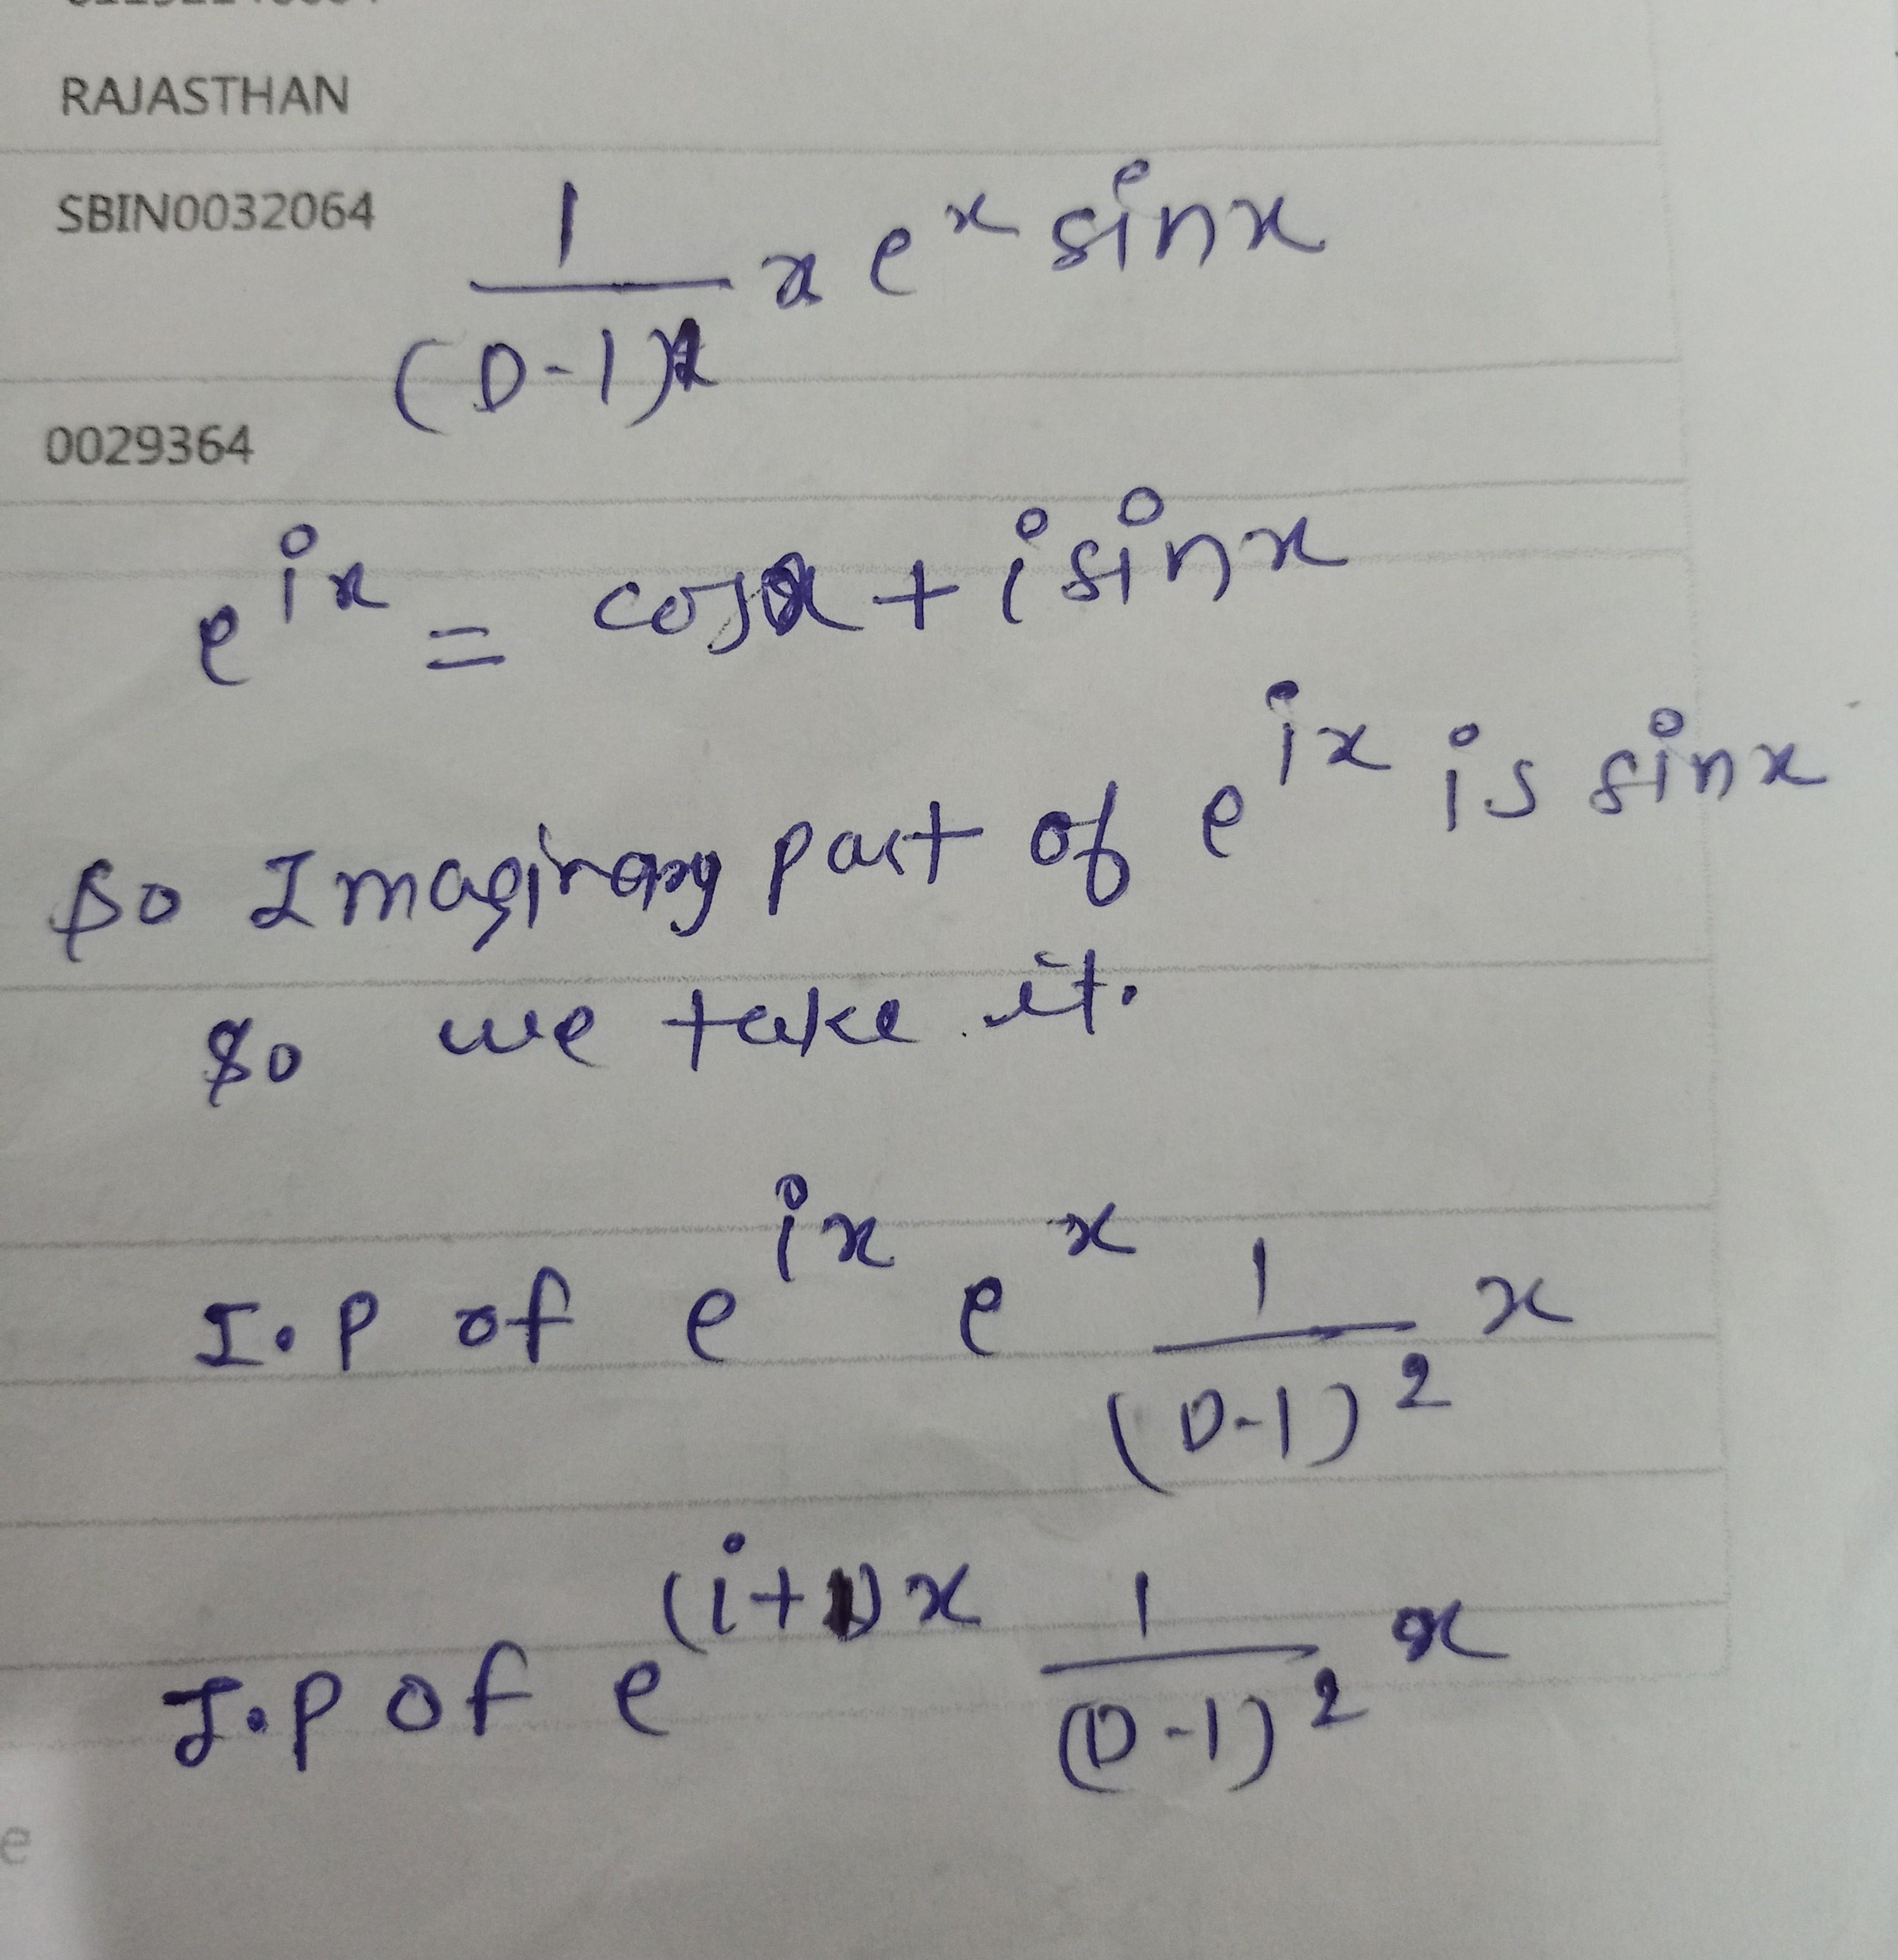 RAJASTHAN
SBIN0032064
1/(D-1)² x e^x sinx
0029364
e^ix = cosx + i sinx
So Imaginary part of e^ix is sinx
So we take it.
I.P of e^ix e^x 1/(D-1)² x
I.P of e^(i+1)x 1/(D-1)² x
e